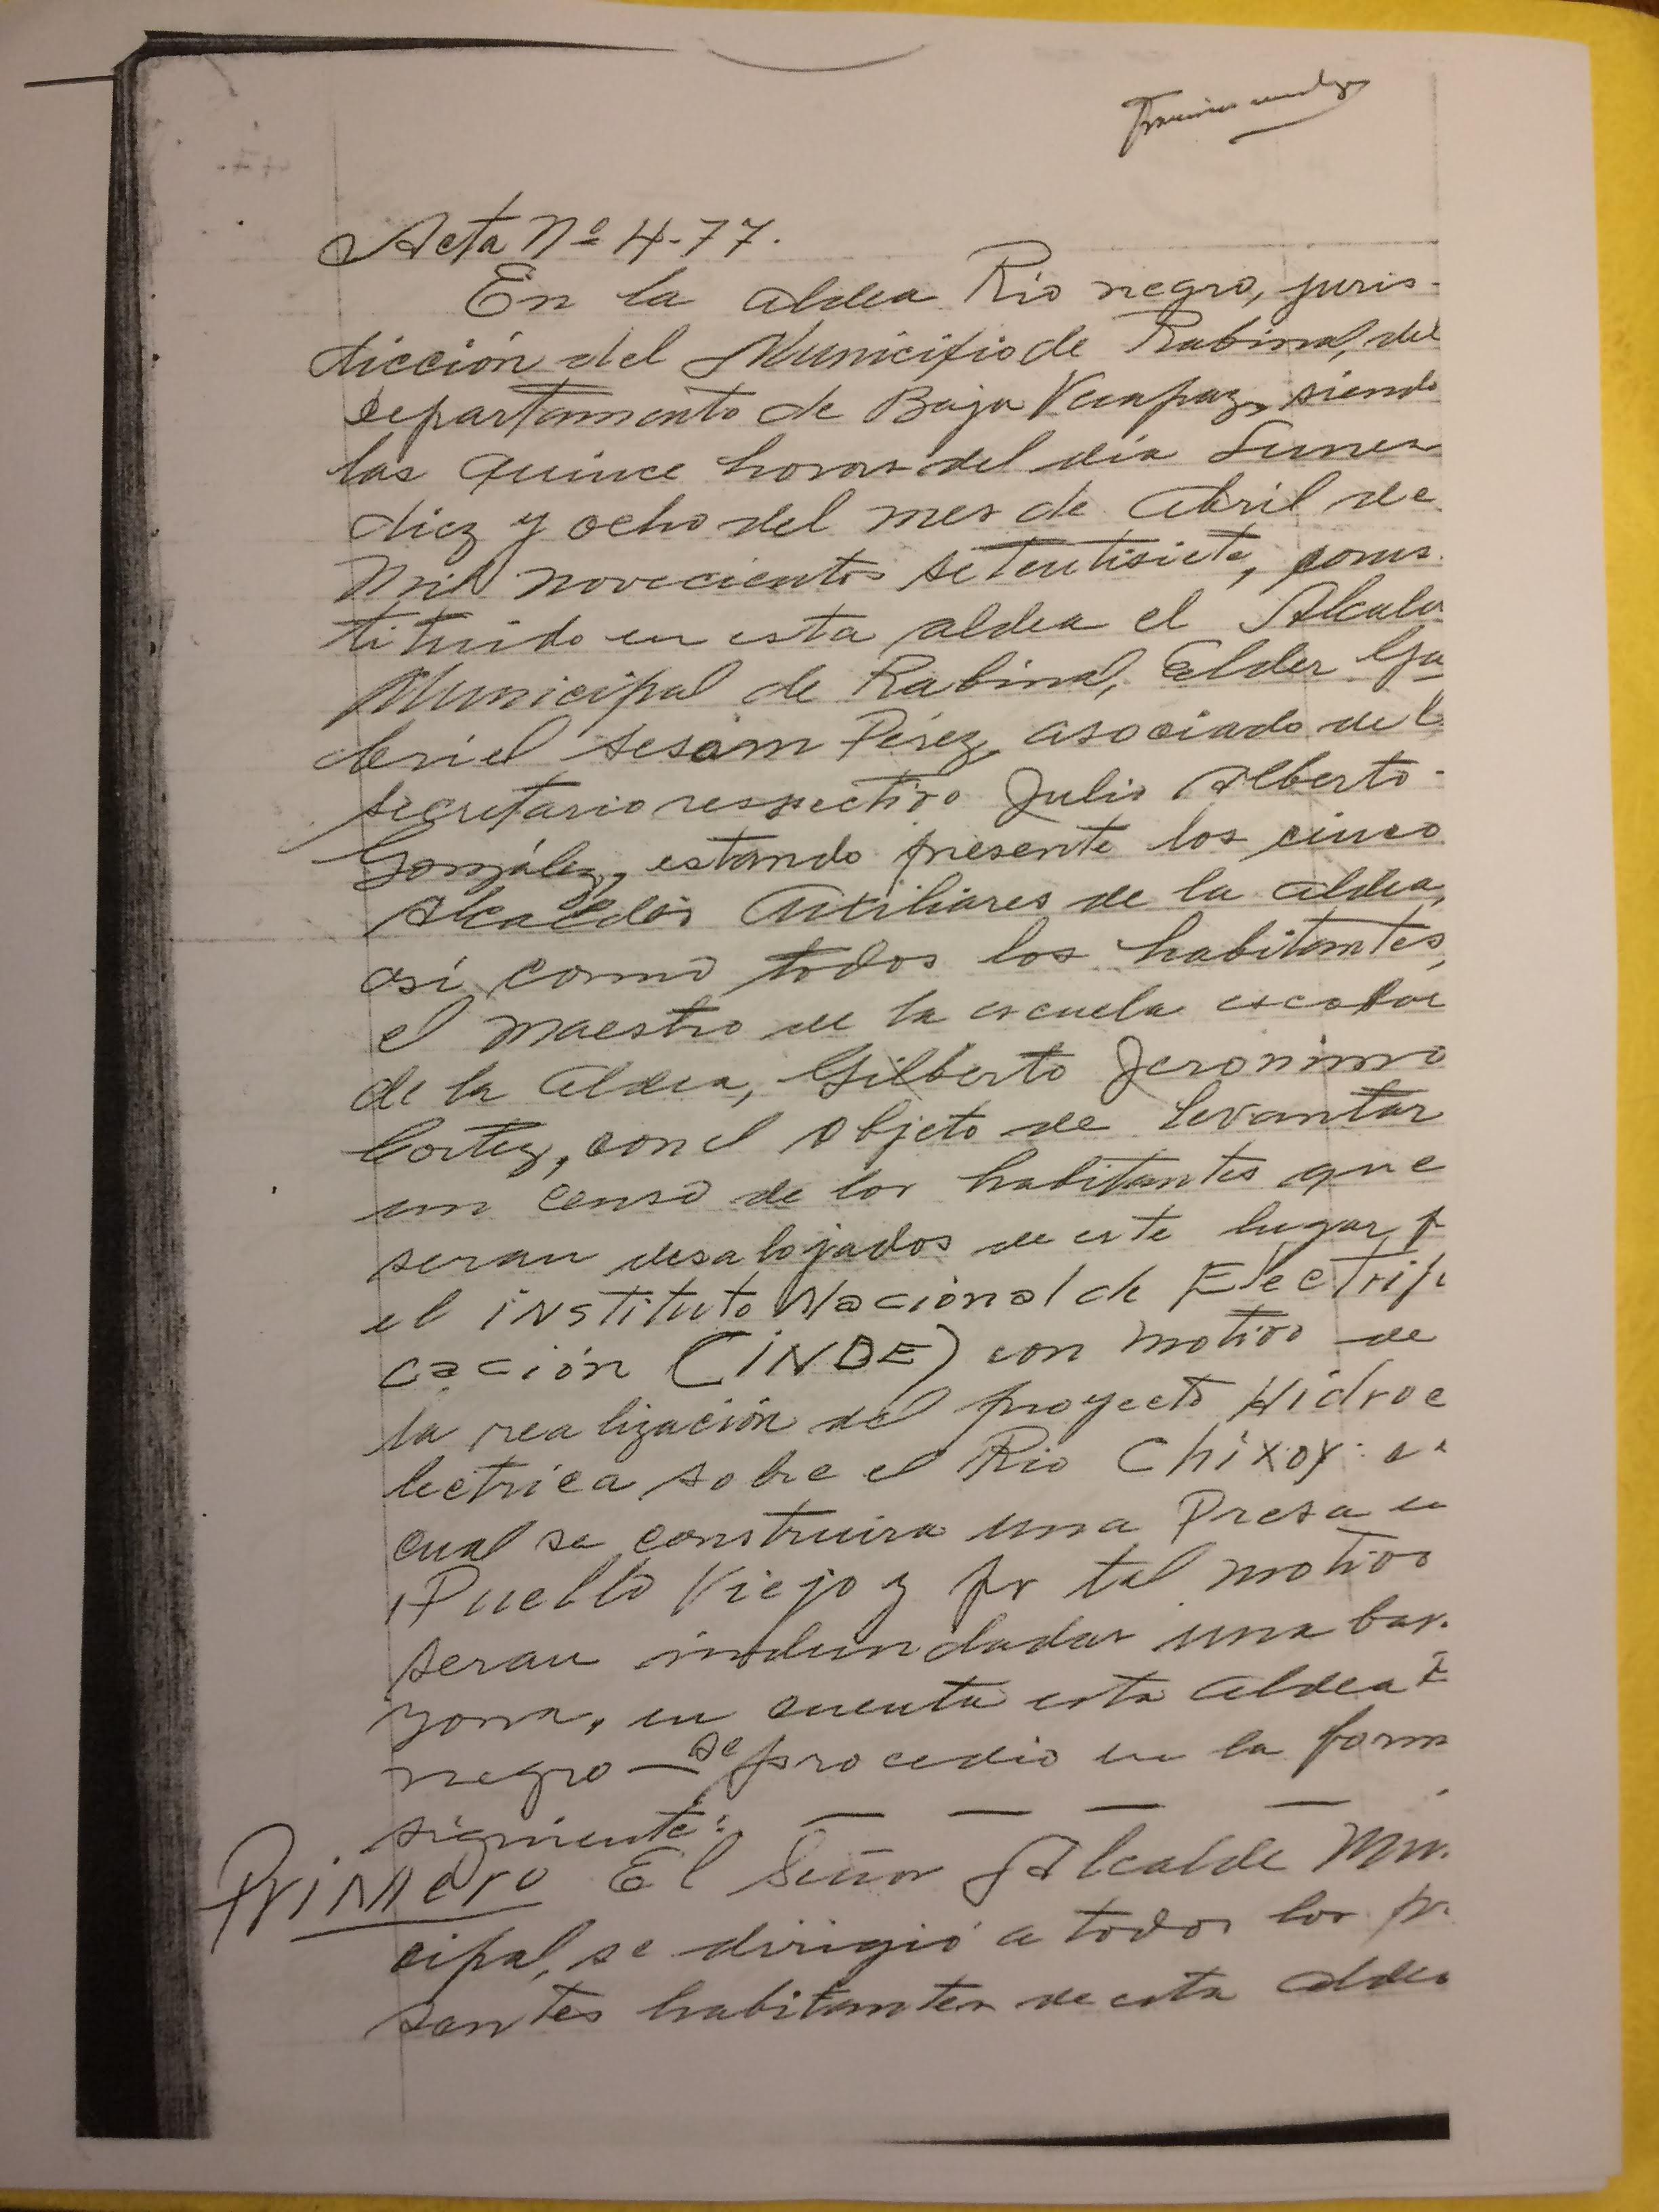 Acta Nº 4-77.
En la aldea Rio negro, juris-
dicción del Municipio de Rabinal, del
Departamento de Baja Verapaz, siendo
las quince horas del día Lunes
diez y ocho del mes de Abril de
Mil novecientos setentisiete, cons-
tituido en esta aldea el Alcalde
Municipal de Rabinal, Elder Ga
briel Sesam Pérez, asociado del
secretario respectivo Julio Alberto-
González, estando presente los cinco
Alcaldes Auxiliares de la aldea,
así como todos los habitantes,
el maestro de la escuela escolar
de la aldea, Gilberto Jeronimo
Cortez, con el objeto de levantar
un censo de los habitantes que
seran desalojados de este lugar p
el iNstituto Nacional de Electrifi
cación (INDE) con motivo de
la realización del proyecto Hidroe
lectrica sobre el Rio Chixoy:
cual se construira una Presa en
Pueblo Viejo y por tal motivo
seran indundadas una bas.
zona, en cuenta esta aldea R
negro — se procedio en la form
siguiente: — — — —
Primero El Señor Alcalde Mu.
cipal, se dirigió a todos los pr
santes habitantes de esta aldea